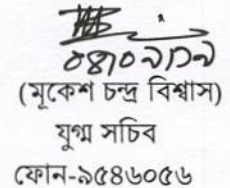 (মুকেশ চন্দ্র বিশ্বাস)
যুগ্ম সচিব
ফোন-৯৫৪৬০৫৬